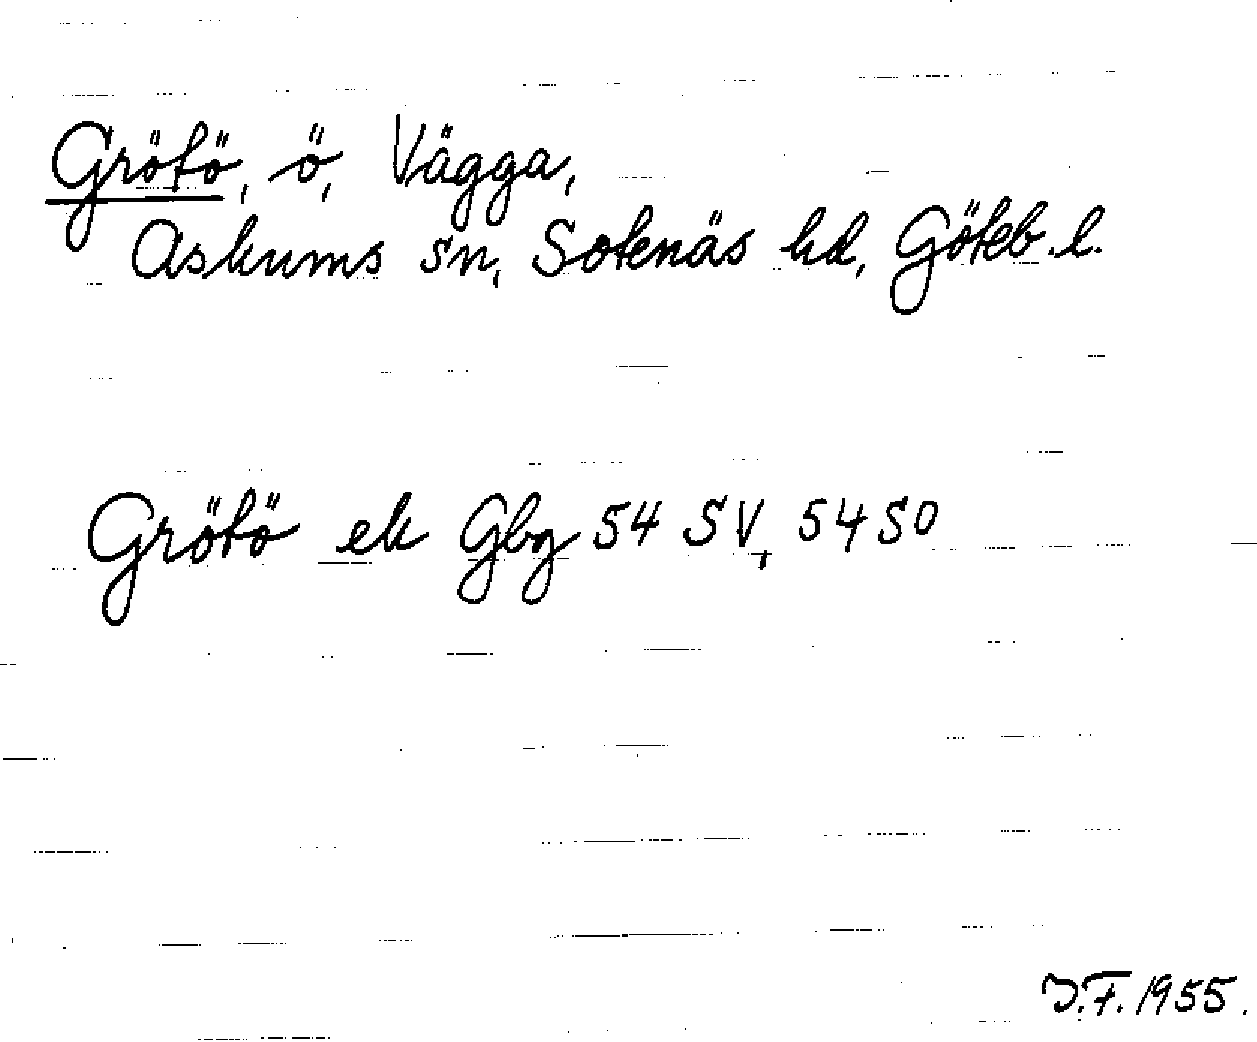 Grötö, ö, Vägga,
Askums sn, Sotenäs hd, Göteb. l.
Grötö ek Gbg 54 SV, 54 SO
J.F. 1955.